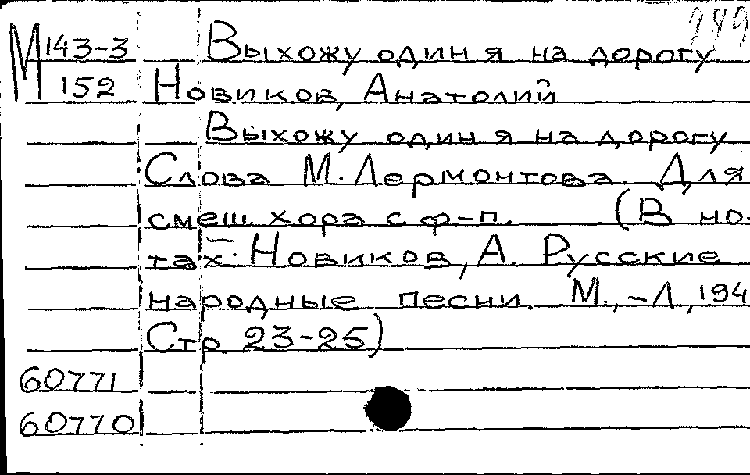 М 143-3 Выхожу один я на дорогу
152 Новиков, Анатолий
Выхожу один я на дорогу
Слова М. Лермонтова. Для
смеш хора с ф-п. (В но-
тах: Новиков, А. Русские
народные песни. М.,-Л., 194
Стр 23-25)
60771
60770